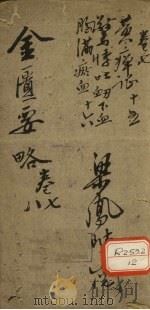 卷七
黄疸证十五
驚悸吐衄下血
胸滿瘀血十六
金匱要略卷七八
梁鳳
R2592
12